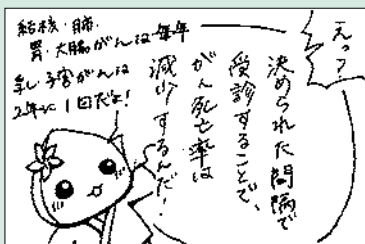 えっ？
決められた間隔で
受診することで、
がん死亡率は
減少するんだ！
結核・肺・
胃・大腸がんは毎年
乳・子宮がんは
2年に1回だよ！